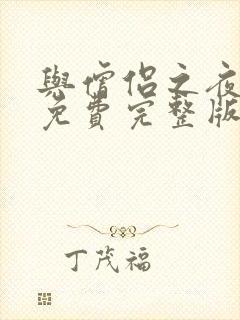 與僧侶之夜
免費完整版
丁茂福